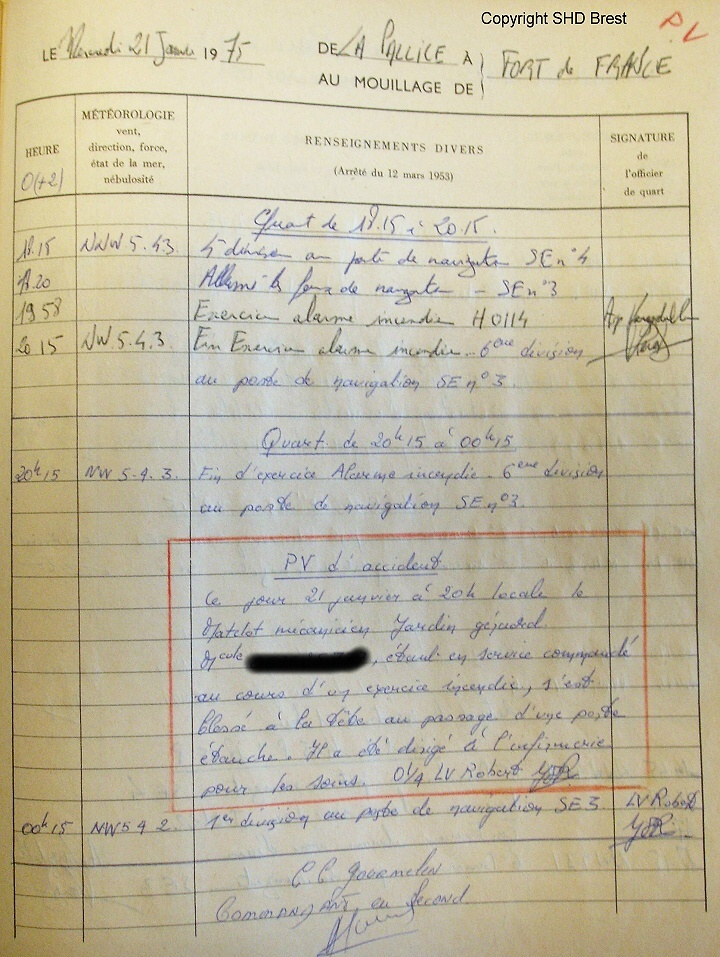 Copyright SHD Brest
P.L
LE Mercredi 21 Janvier 1975 DE LA PALLICE À
AU MOUILLAGE DE FORT de FRANCE
HEURE
0(+2)
MÉTÉOROLOGIE
vent,
direction, force,
état de la mer,
nébulosité
RENSEIGNEMENTS DIVERS
(Arrêté du 12 mars 1953)
SIGNATURE
de
l'officier
de quart
Quart de 18.15 à 20.15.
18.15 NNW 5.4.3. 5e division au poste de navigation SE n°4
18.20 Allumé les feux de navigation - SE n°3
1958 Exercice alarme incendie H0114
20 15 NW.5.4.3. Fin Exercice alarme incendie - 6eme division
au poste de navigation SE n°3.
Quart de 20h15 à 00h15
20h15 NW 5.4.3. Fin d'exercice Alarme incendie - 6eme division
au poste de navigation SE n°3.
PV d'accident
Ce jour 21 janvier à 20h locale le
Matelot mécanicien Jardin gérard
Mcule , étant en service commandé
au cours d'un exercice incendie, s'est
blessé à la tête au passage d'une porte
étanche. Il a été dirigé à l'infirmerie
pour les soins. O/Q LV Robert
00h15 NW 5 4 2. 1ere division au poste de navigation SE 3. LV Robert
CC Gourmelen
Commandant en Second